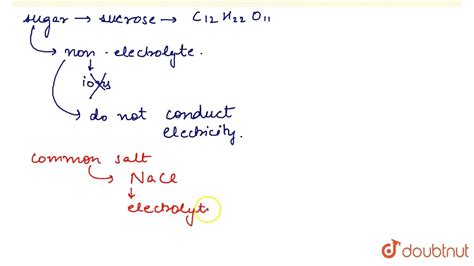 sugar → sucrose → C12 H22 O11
non-electrolyte.
ions
do not conduct
electricity.
common salt
NaCl
electrolyt
doubtnut